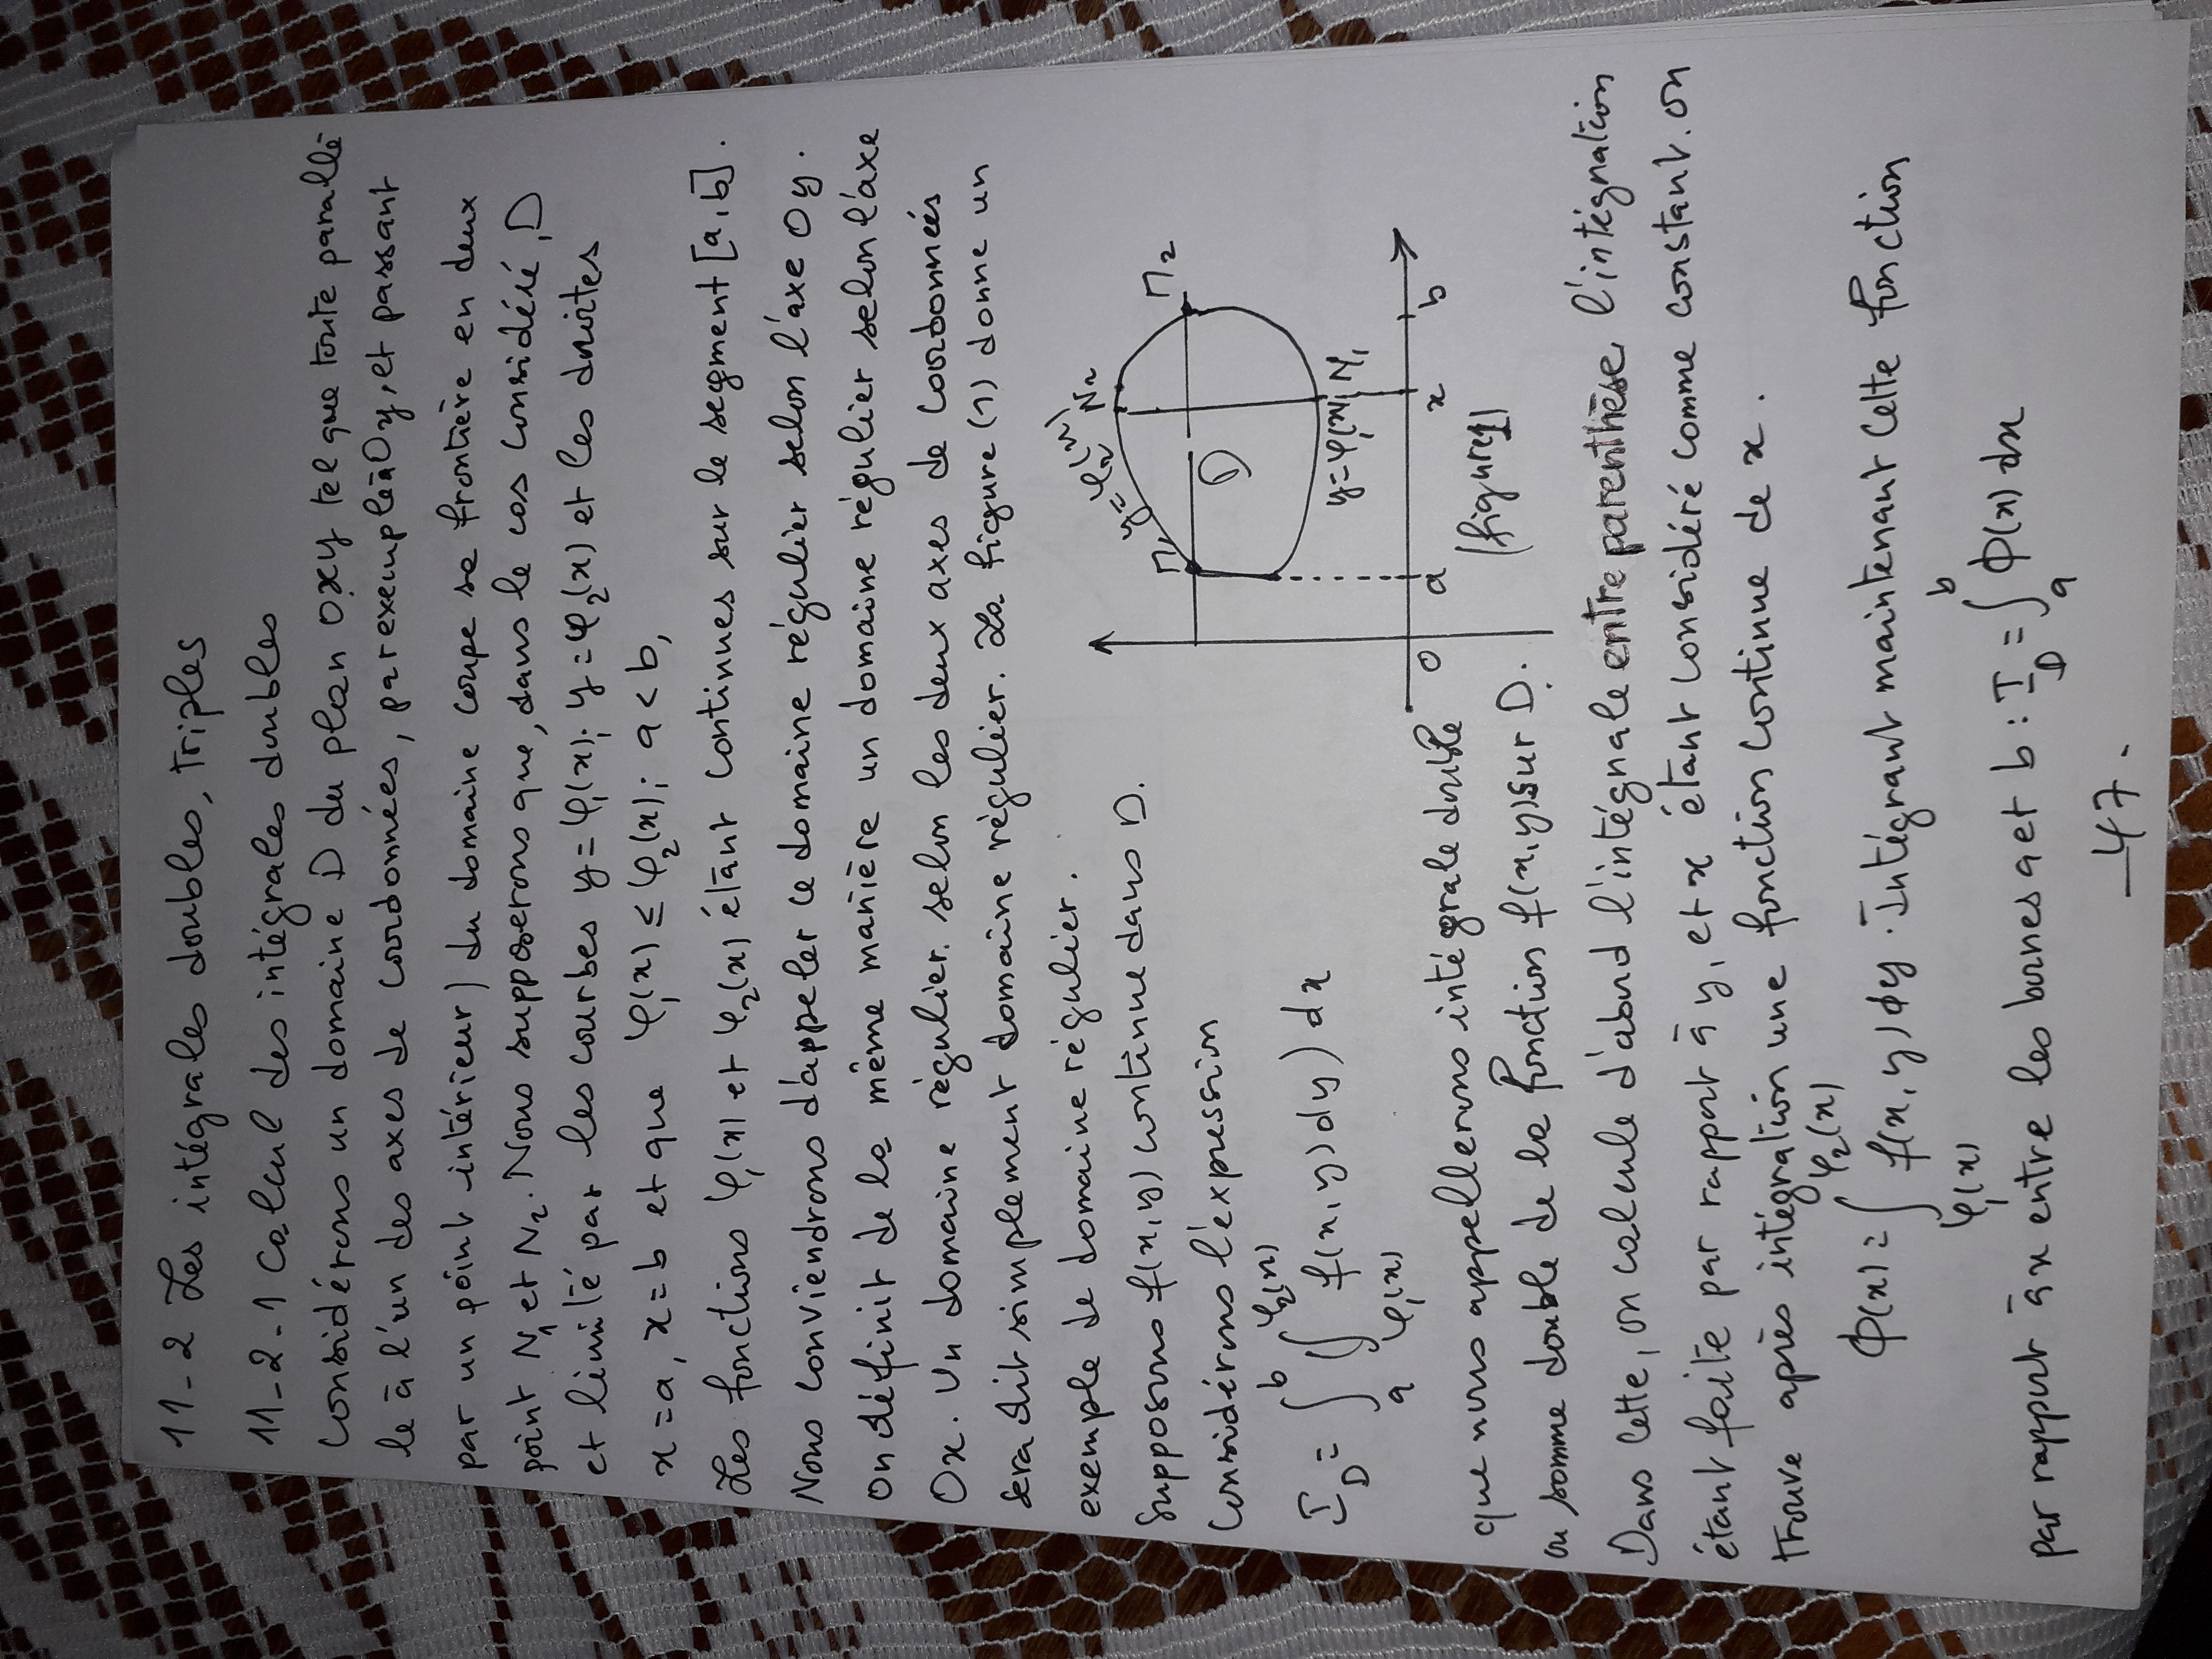 11-2 Les intégrales doubles, triples
11-2-1 Calcul des intégrales doubles
Considérons un domaine D du plan oxy tel que toute parallè
le à l'un des axes de coordonnées, par exemple à Oy, et passant
par un point intérieur) du domaine coupe sa frontière en deux
point N₁ et N₂. Nous supposerons que, dans le cas considéré, D
et limité par les courbes y = φ₁(x); y = φ₂(x) et les droites
x = a, x = b et que φ₁(x) ≤ φ₂(x); a < b,
Les fonctions φ₁(x) et φ₂(x) étant continues sur le segment [a, b].
Nous conviendrons d'appeler ce domaine régulier selon l'axe Oy.
On définit de la même manière un domaine régulier selon l'axe
Ox. Un domaine régulier. selon les deux axes de coordonnées
sera dit simplement domaine régulier. La figure (1) donne un
exemple de domaine régulier.
Supposons f(x,y) continue dans D.
Considérons l'expression
I_D = ∫_a^b ∫_{φ₁(x)}^{φ₂(x)} f(x,y) dy) dx
y = φ₂(x) N₂
M₁ M₂
D
y = φ₁(x) N₁
0 a x b
(figure 1)
que nous appellerons intégrale double
ou somme double de la fonction f(x,y) sur D.
Dans cette, on calcule d'abord l'intégrale entre parenthèse, l'intégration
étant faite par rapport à y, et x étant considéré comme constant. on
trouve après intégration une fonction continue de x.
Φ(x) = ∫_{φ₁(x)}^{φ₂(x)} f(x,y) dy. Intégrant maintenant cette fonction
par rapport à x entre les bornes a et b : I_D = ∫_a^b Φ(x) dx
-47-